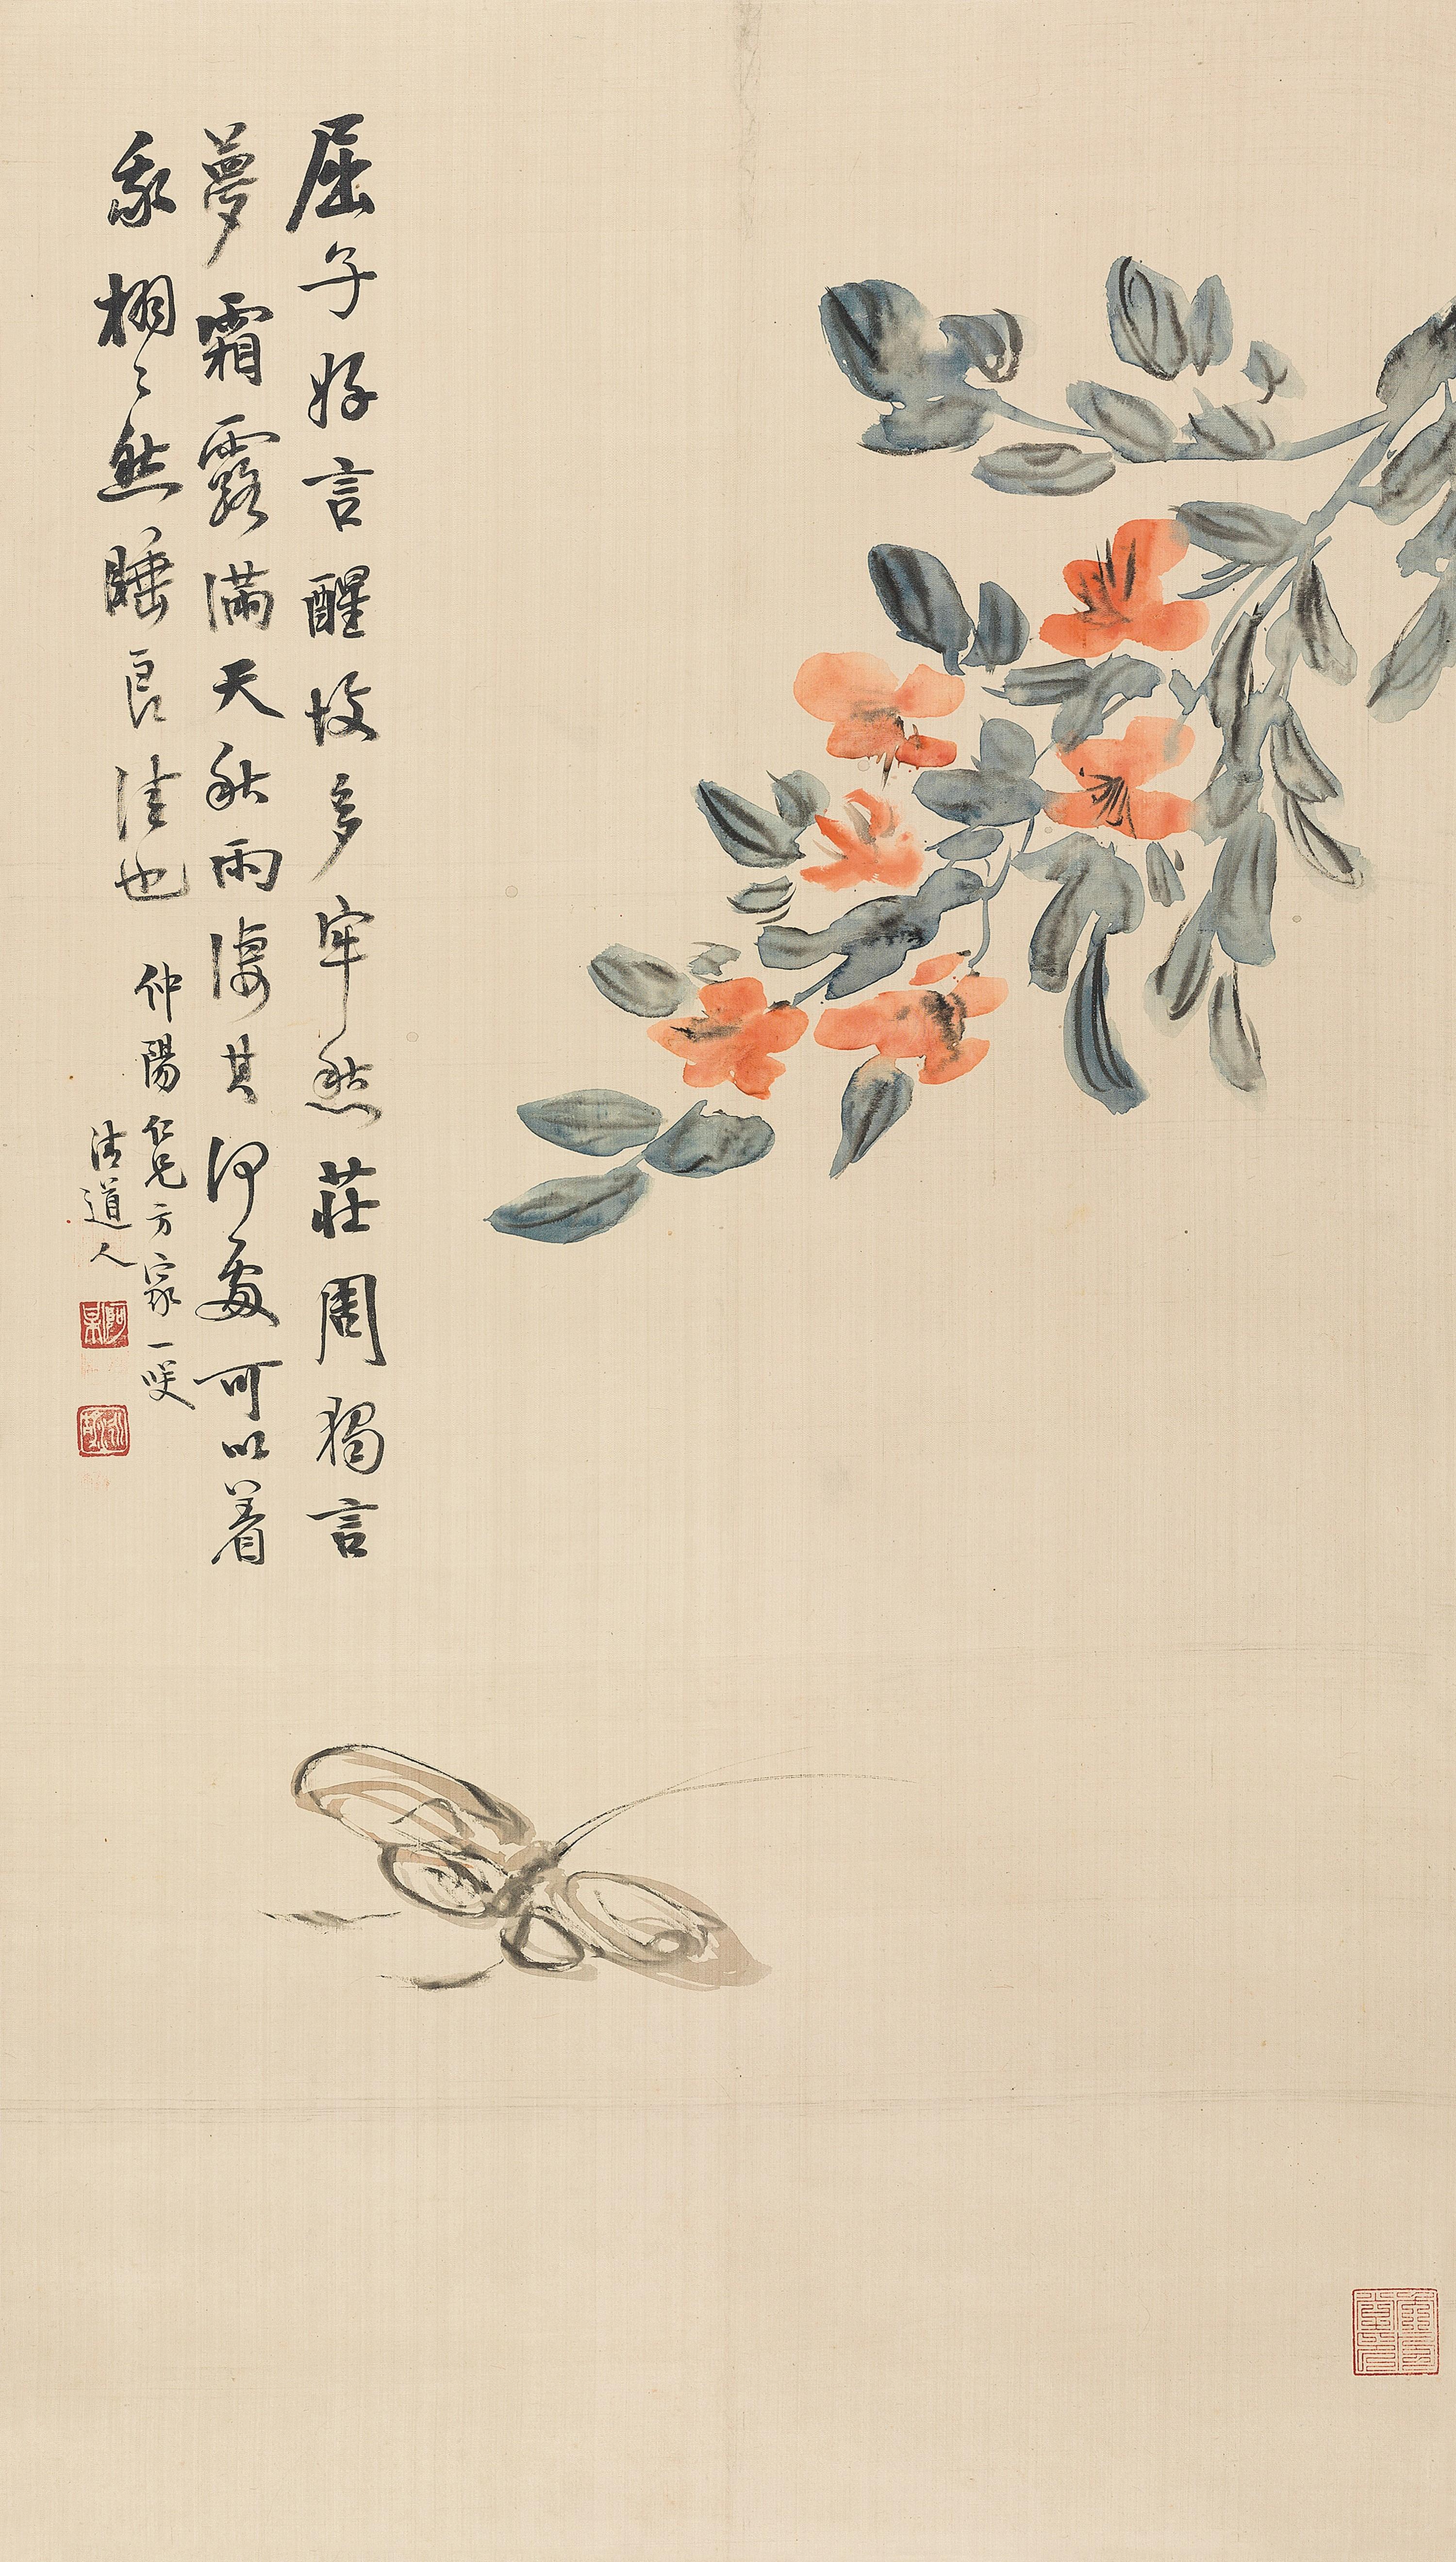 屈子好言醒故多牢愁莊周獨言
夢霜露滿天秋雨淒其何處可以着
我栩々然睡良佳也 仲陽仁兄方家一咲
清道人